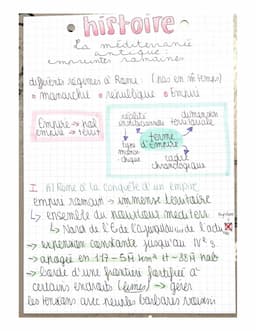 histoire
La méditerranée
antique :
empreintes romaines
différents régimes à Rome : (pas en m̂ temps)
monarchie république Empire
Empire → hab
empire → territ
réalité
institutionnelle
dimension
territoriale
terme
d'empire
type
monar-
chique
cadre
chronologique
I. A) Rome à la conquête d'un empire
empire romain → immense territoire
↳ ensemble du pourtour méditerr
↳ Nord de l'É de l'
→ expansion constante jusqu'au IIe s
→ apogée en 117 - 5M km² et - 88M hab
→ bordé d'une frontière fortifiée à
certains endroits (limes) → gérer
les tensions avec peuples barbares voisins